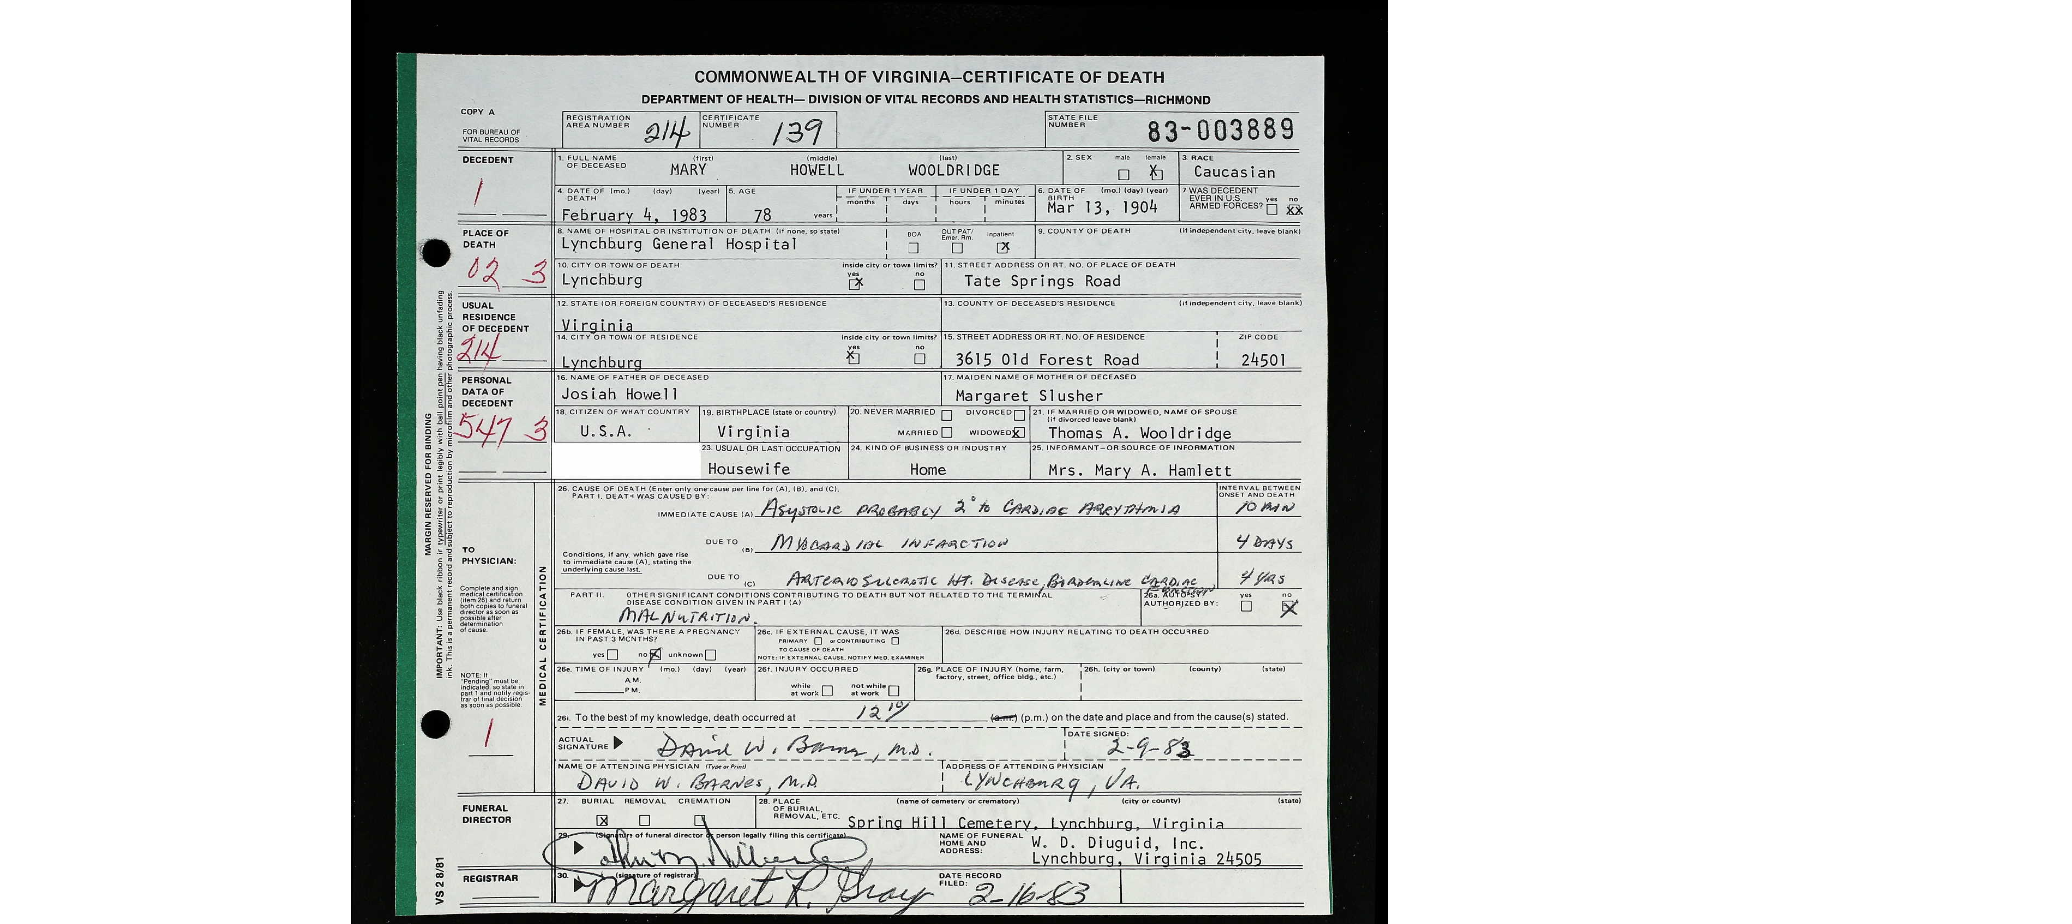 COMMONWEALTH OF VIRGINIA—CERTIFICATE OF DEATH
DEPARTMENT OF HEALTH— DIVISION OF VITAL RECORDS AND HEALTH STATISTICS—RICHMOND
COPY A
FOR BUREAU OF VITAL RECORDS
REGISTRATION AREA NUMBER 214
CERTIFICATE NUMBER 139
STATE FILE NUMBER 83-003889
DECEDENT
1
1. FULL NAME OF DECEASED (first) MARY (middle) HOWELL (last) WOOLDRIDGE
2. SEX male female X
3. RACE Caucasian
4. DATE OF DEATH (mo.) (day) (year) February 4, 1983
5. AGE 78 years
IF UNDER 1 YEAR months days
IF UNDER 1 DAY hours minutes
6. DATE OF BIRTH (mo.) (day) (year) Mar 13, 1904
7 WAS DECEDENT EVER IN U.S. ARMED FORCES? yes no XX
PLACE OF DEATH
02 3
8. NAME OF HOSPITAL OR INSTITUTION OF DEATH (if none, so state) Lynchburg General Hospital
DOA OUT PAT/ Emer. Rm. Inpatient X
9. COUNTY OF DEATH (if independent city, leave blank)
10. CITY OR TOWN OF DEATH Lynchburg
inside city or town limits? yes X no
11. STREET ADDRESS OR RT. NO. OF PLACE OF DEATH Tate Springs Road
USUAL RESIDENCE OF DECEDENT
214
12. STATE (OR FOREIGN COUNTRY) OF DECEASED'S RESIDENCE Virginia
13. COUNTY OF DECEASED'S RESIDENCE (if independent city, leave blank)
14. CITY OR TOWN OF RESIDENCE Lynchburg
inside city or town limits? yes X no
15. STREET ADDRESS OR RT. NO. OF RESIDENCE 3615 Old Forest Road
ZIP CODE 24501
PERSONAL DATA OF DECEDENT
547 3
16. NAME OF FATHER OF DECEASED Josiah Howell
17. MAIDEN NAME OF MOTHER OF DECEASED Margaret Slusher
18. CITIZEN OF WHAT COUNTRY U.S.A.
19. BIRTHPLACE (state or country) Virginia
20. NEVER MARRIED DIVORCED MARRIED WIDOWED X
21. IF MARRIED OR WIDOWED, NAME OF SPOUSE (if divorced leave blank) Thomas A. Wooldridge
23. USUAL OR LAST OCCUPATION Housewife
24. KIND OF BUSINESS OR INDUSTRY Home
25. INFORMANT—OR SOURCE OF INFORMATION Mrs. Mary A. Hamlett
MARGIN RESERVED FOR BINDING
IMPORTANT: Use black ribbon if typewriter or print legibly with ball point pen having black unfading
ink. This is a permanent record and subject to reproduction by microfilm and other photographic process.
MEDICAL CERTIFICATION
TO PHYSICIAN:
Complete and sign medical certification (item 26) and return both copies to funeral director as soon as possible after determination of cause.
NOTE: If "Pending" must be indicated, so state in part 1 and notify registrar of final decision as soon as possible
1
26. CAUSE OF DEATH (Enter only one cause per line for (A), (B), and (C).
PART I. DEATH WAS CAUSED BY:
INTERVAL BETWEEN ONSET AND DEATH
IMMEDIATE CAUSE (A) ASYSTOLIC PROBABLY 2° to CARDIAC ARRYTHMIA 10 MIN
DUE TO (B) MYOCARDIAL INFARCTION 4 DAYS
Conditions, if any which gave rise to immediate cause (A), stating the underlying cause last.
DUE TO (C) ARTERIOSCLEROTIC HT. DISEASE, BORDERLINE CARDIAC 4 YRS
PART II. OTHER SIGNIFICANT CONDITIONS CONTRIBUTING TO DEATH BUT NOT RELATED TO THE TERMINAL DISEASE CONDITION GIVEN IN PART I (A)
MALNUTRITION.
26a. AUTOPSY AUTHORIZED BY: yes no X
26b. IF FEMALE, WAS THERE A PREGNANCY IN PAST 3 MONTHS? yes no X unknown
26c. IF EXTERNAL CAUSE, IT WAS PRIMARY or CONTRIBUTING TO CAUSE OF DEATH
NOTE: IF EXTERNAL CAUSE, NOTIFY MED. EXAMINER
26d. DESCRIBE HOW INJURY RELATING TO DEATH OCCURRED
26e. TIME OF INJURY (mo.) (day) (year) A.M. P.M.
26f. INJURY OCCURRED while at work not while at work
26g. PLACE OF INJURY (home, farm, factory, street, office bldg., etc.)
26h. (city or town) (county) (state)
26i. To the best of my knowledge, death occurred at 12 10 (a.m.) (p.m.) on the date and place and from the cause(s) stated.
ACTUAL SIGNATURE David W. Barnes, M.D.
DATE SIGNED: 2-9-83
NAME OF ATTENDING PHYSICIAN (Type or Print) DAVID W. BARNES, M.D.
ADDRESS OF ATTENDING PHYSICIAN LYNCHBURG, VA.
FUNERAL DIRECTOR
27. BURIAL X REMOVAL CREMATION
28. PLACE OF BURIAL, REMOVAL, ETC. (name of cemetery or crematory) (city or county) (state)
Spring Hill Cemetery, Lynchburg, Virginia
29. (Signature of funeral director or person legally filing this certificate)
NAME OF FUNERAL HOME AND ADDRESS: W. D. Diuguid, Inc.
Lynchburg, Virginia 24505
REGISTRAR
30. (signature of registrar) Margaret R. Gray
DATE RECORD FILED: 2-16-83
VS 2 8/81